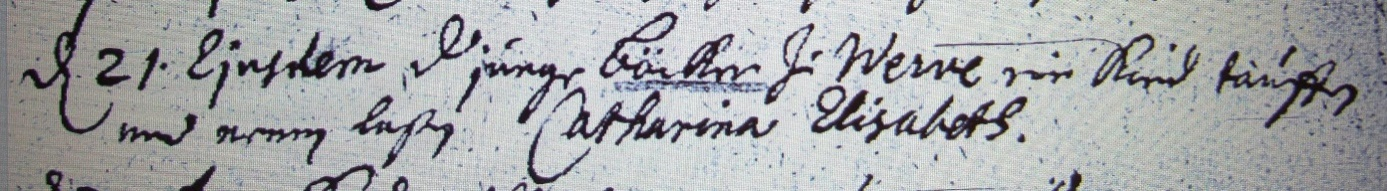 d 21. Ejusdem d junge Böcker zu Werve ein Kind täuffen
und nennen laßen Catharina Elisabeth.